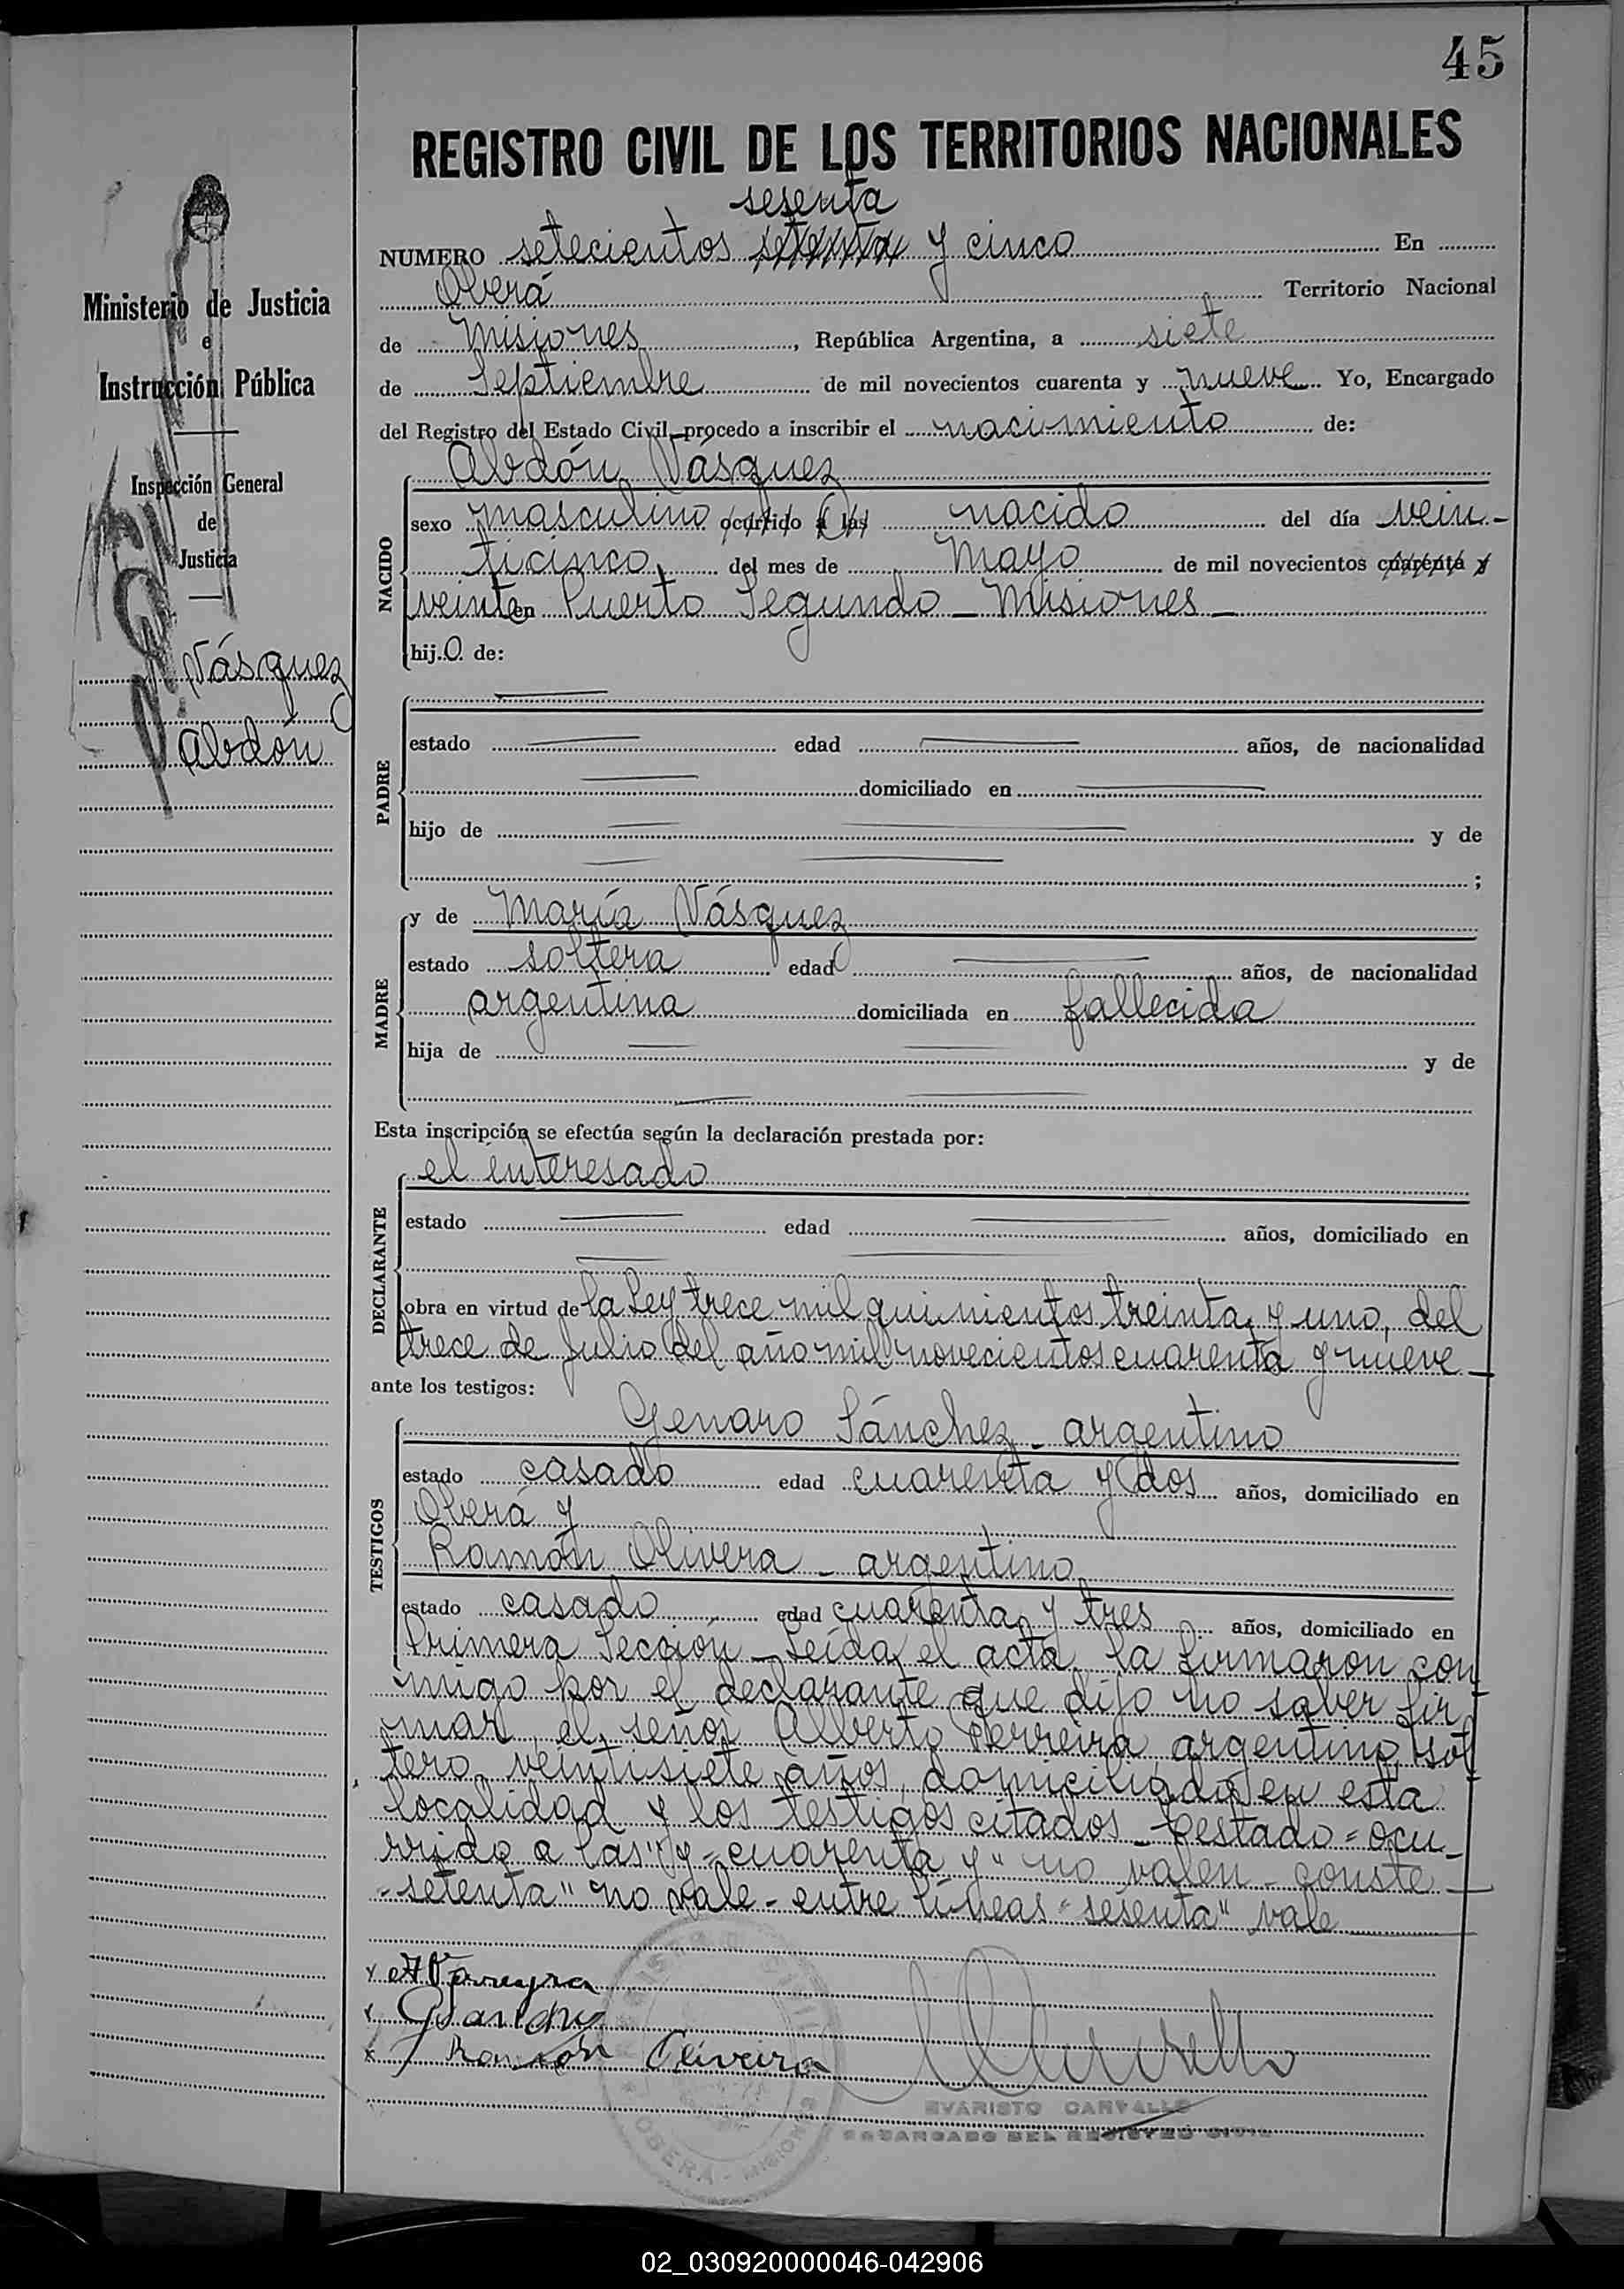 45
REGISTRO CIVIL DE LOS TERRITORIOS NACIONALES
sesenta
NUMERO setecientos setenta y cinco En
Oberá Territorio Nacional
de Misiones, República Argentina, a siete
de Septiembre de mil novecientos cuarenta y nueve Yo, Encargado
del Registro del Estado Civil, procedo a inscribir el nacimiento de:
Ministerio de Justicia
e
Instrucción Pública
Inspección General
de
Justicia
Vásquez
Abdón
NACIDO
Abdón Vásquez
sexo masculino ocurrido a las nacido del día vein-
ticinco del mes de Mayo de mil novecientos cuarenta y
veinte en Puerto Segundo - Misiones -
hijo de:
PADRE
estado edad años, de nacionalidad
domiciliado en
hijo de y de
;
MADRE
y de María Vásquez
estado soltera edad años, de nacionalidad
argentina domiciliada en fallecida
hija de y de
Esta inscripción se efectúa según la declaración prestada por:
DECLARANTE
el interesado
estado edad años, domiciliado en
obra en virtud de la Ley trece mil quinientos treinta y uno, del
trece de Julio del año mil novecientos cuarenta y nueve -
ante los testigos:
TESTIGOS
Genaro Sánchez - argentino
estado casado edad cuarenta y dos años, domiciliado en
Oberá y
Ramón Olivera - argentino
estado casado edad cuarenta y tres años, domiciliado en
Primera Sección - Leída el acta, la firmaron con
migo por el declarante que dijo no saber fir
mar, el señor Alberto Ferreira argentino, sol
tero, veintisiete años, domiciliado en esta
localidad y los testigos citados - Testado = ocu-
rrido a las" y "cuarenta y" no valen - conste -
"setenta" no vale - entre líneas "sesenta" vale
Ramón Oliveira
EVARISTO CARVALLO
ENCARGADO DEL REGISTRO CIVIL
REGISTRO CIVIL
OBERÁ - MISIONES
02_030920000046-042906